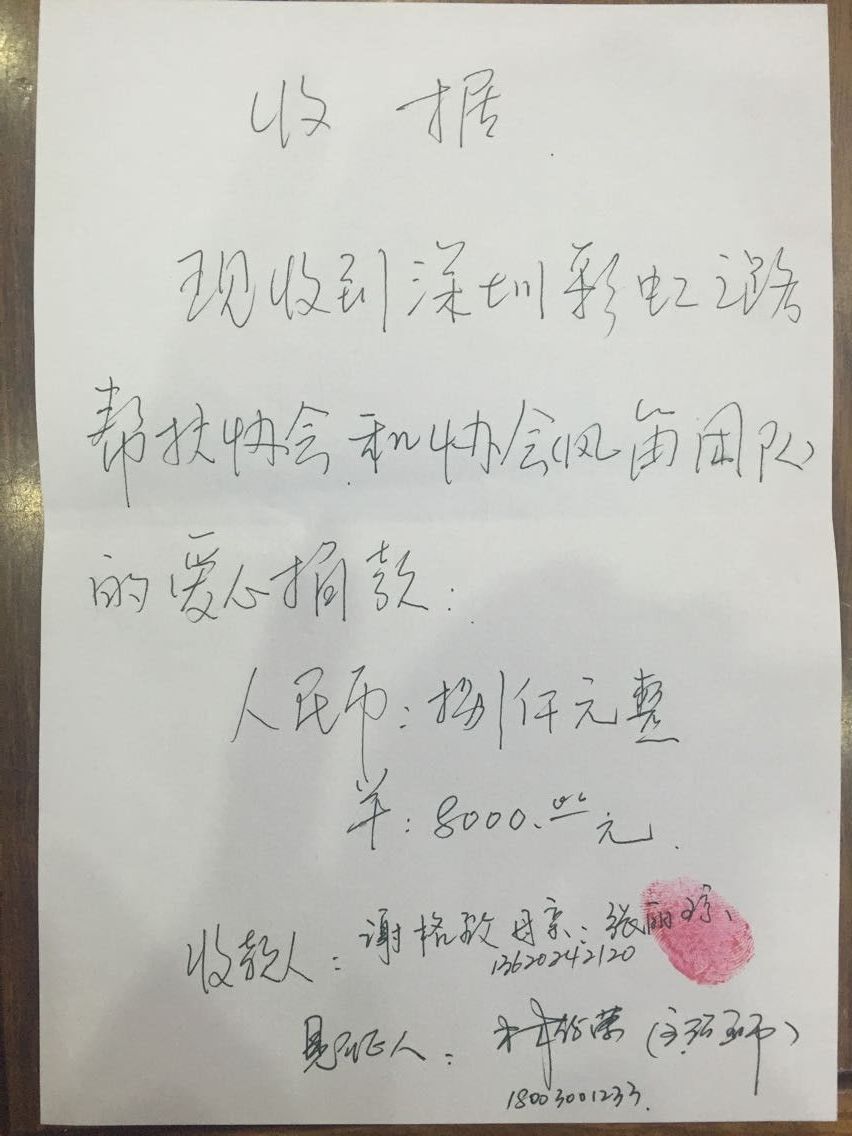 收据
现收到深圳彩虹之路
帮扶协会和协会(风笛团队)
的爱心捐款:
人民币:捌仟元整
¥:8000.00元.
收款人:谢格致母亲:张丽
13620242120
见证人:林 (主 师)
18003001233.